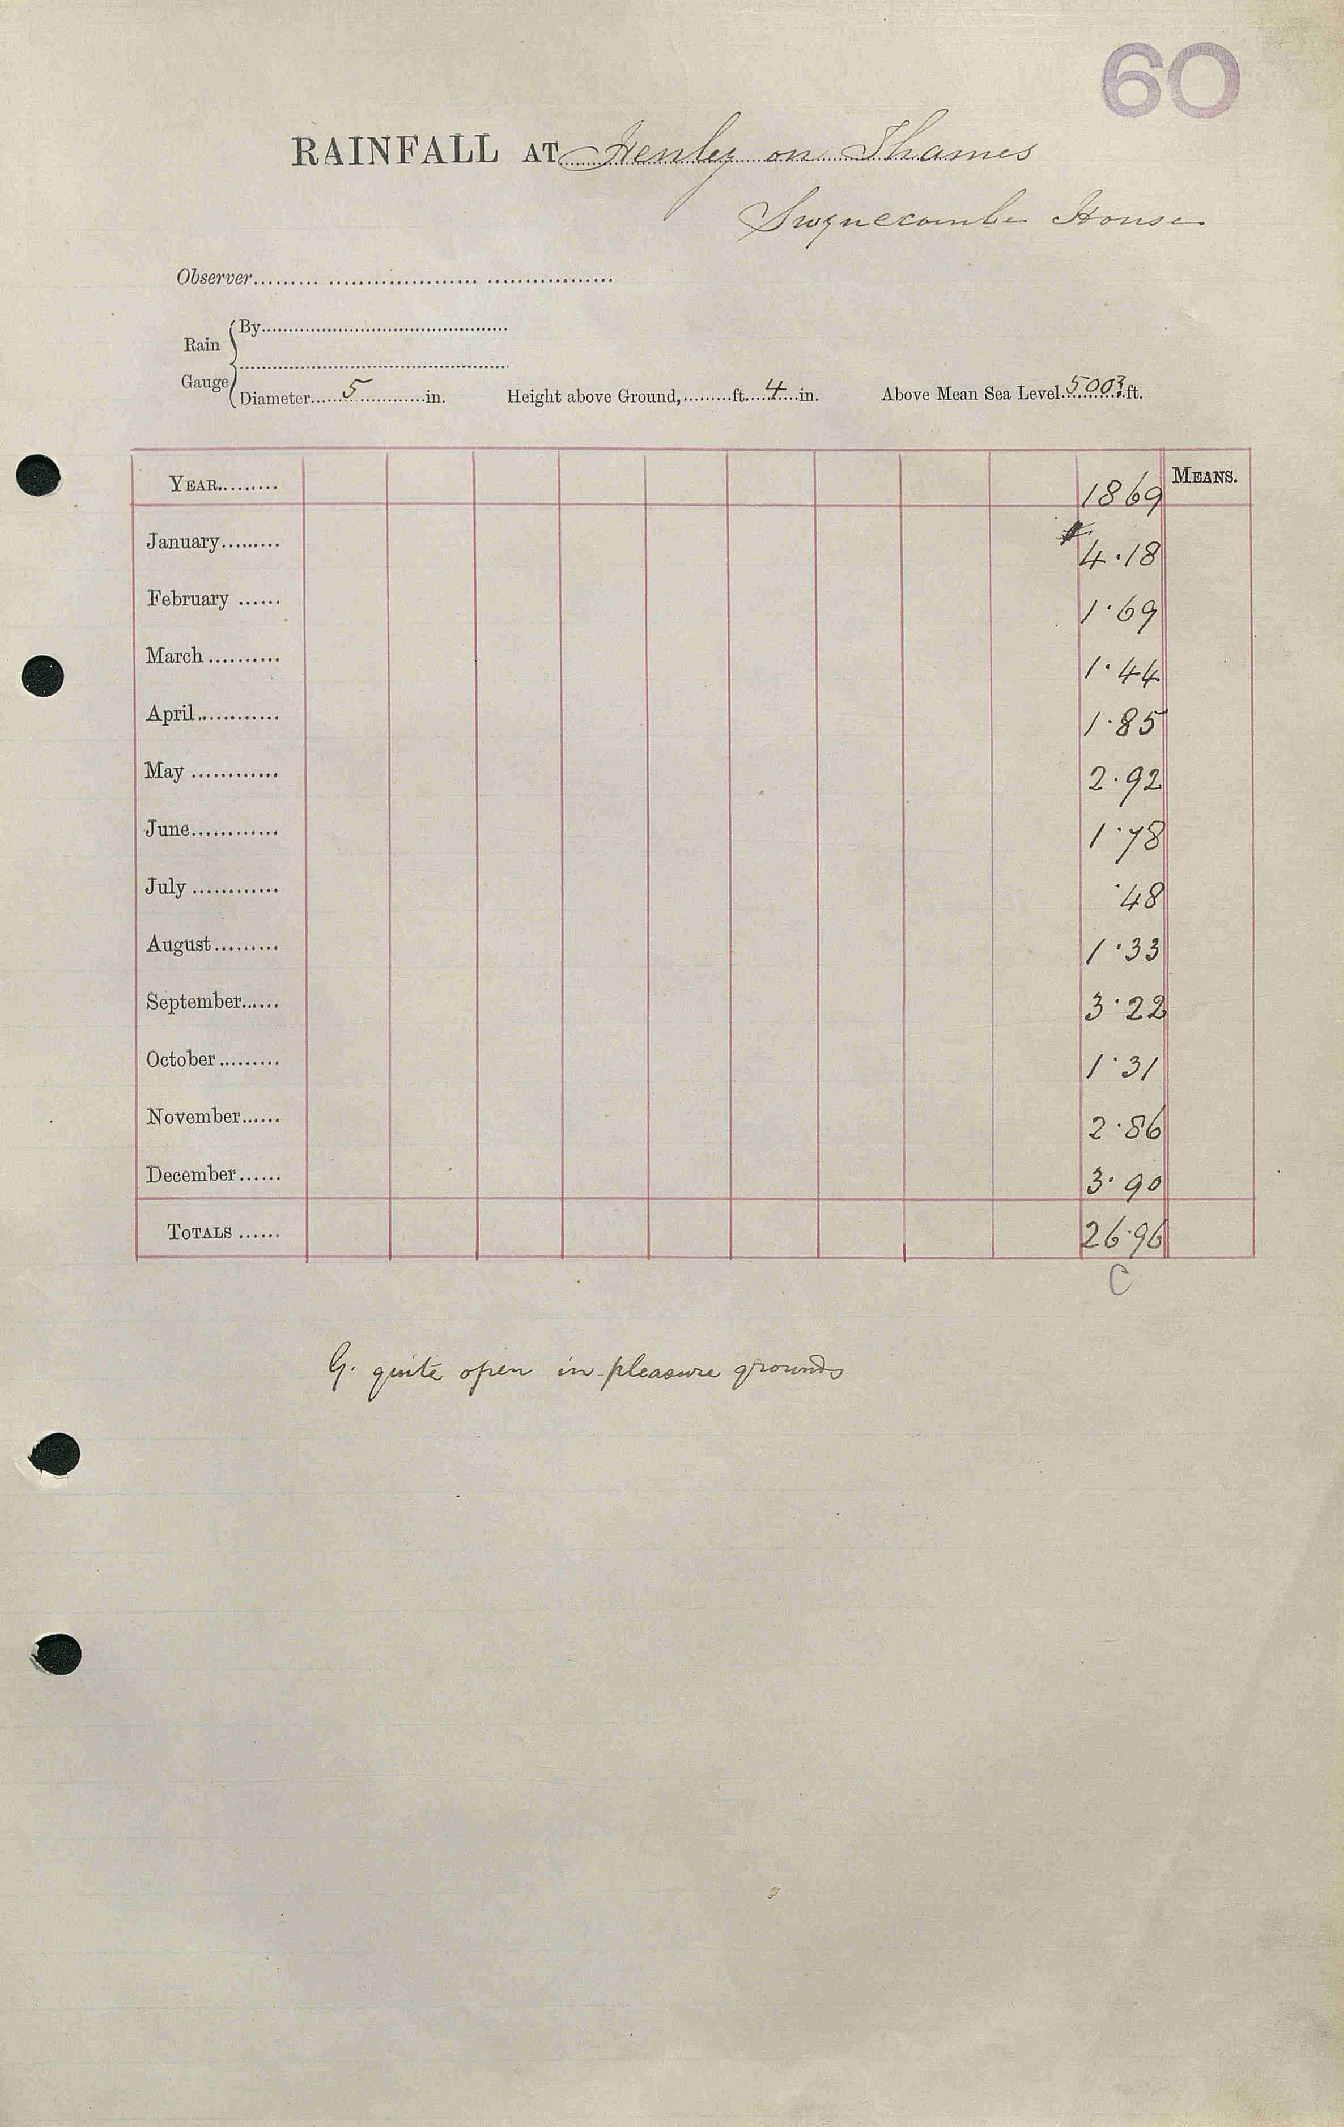 60
RAINFALL AT Henley on Thames
Swyncombe House
Observer
Rain Gauge
By
Diameter 5 in. Height above Ground, ft. 4 in. Above Mean Sea Level 500? ft.
YEAR 1869 MEANS.
January 4.18
February 1.69
March 1.44
April 1.85
May 2.92
June 1.78
July .48
August 1.33
September 3.22
October 1.31
November 2.86
December 3.90
TOTALS 26.96
C
G. quite open in pleasure grounds